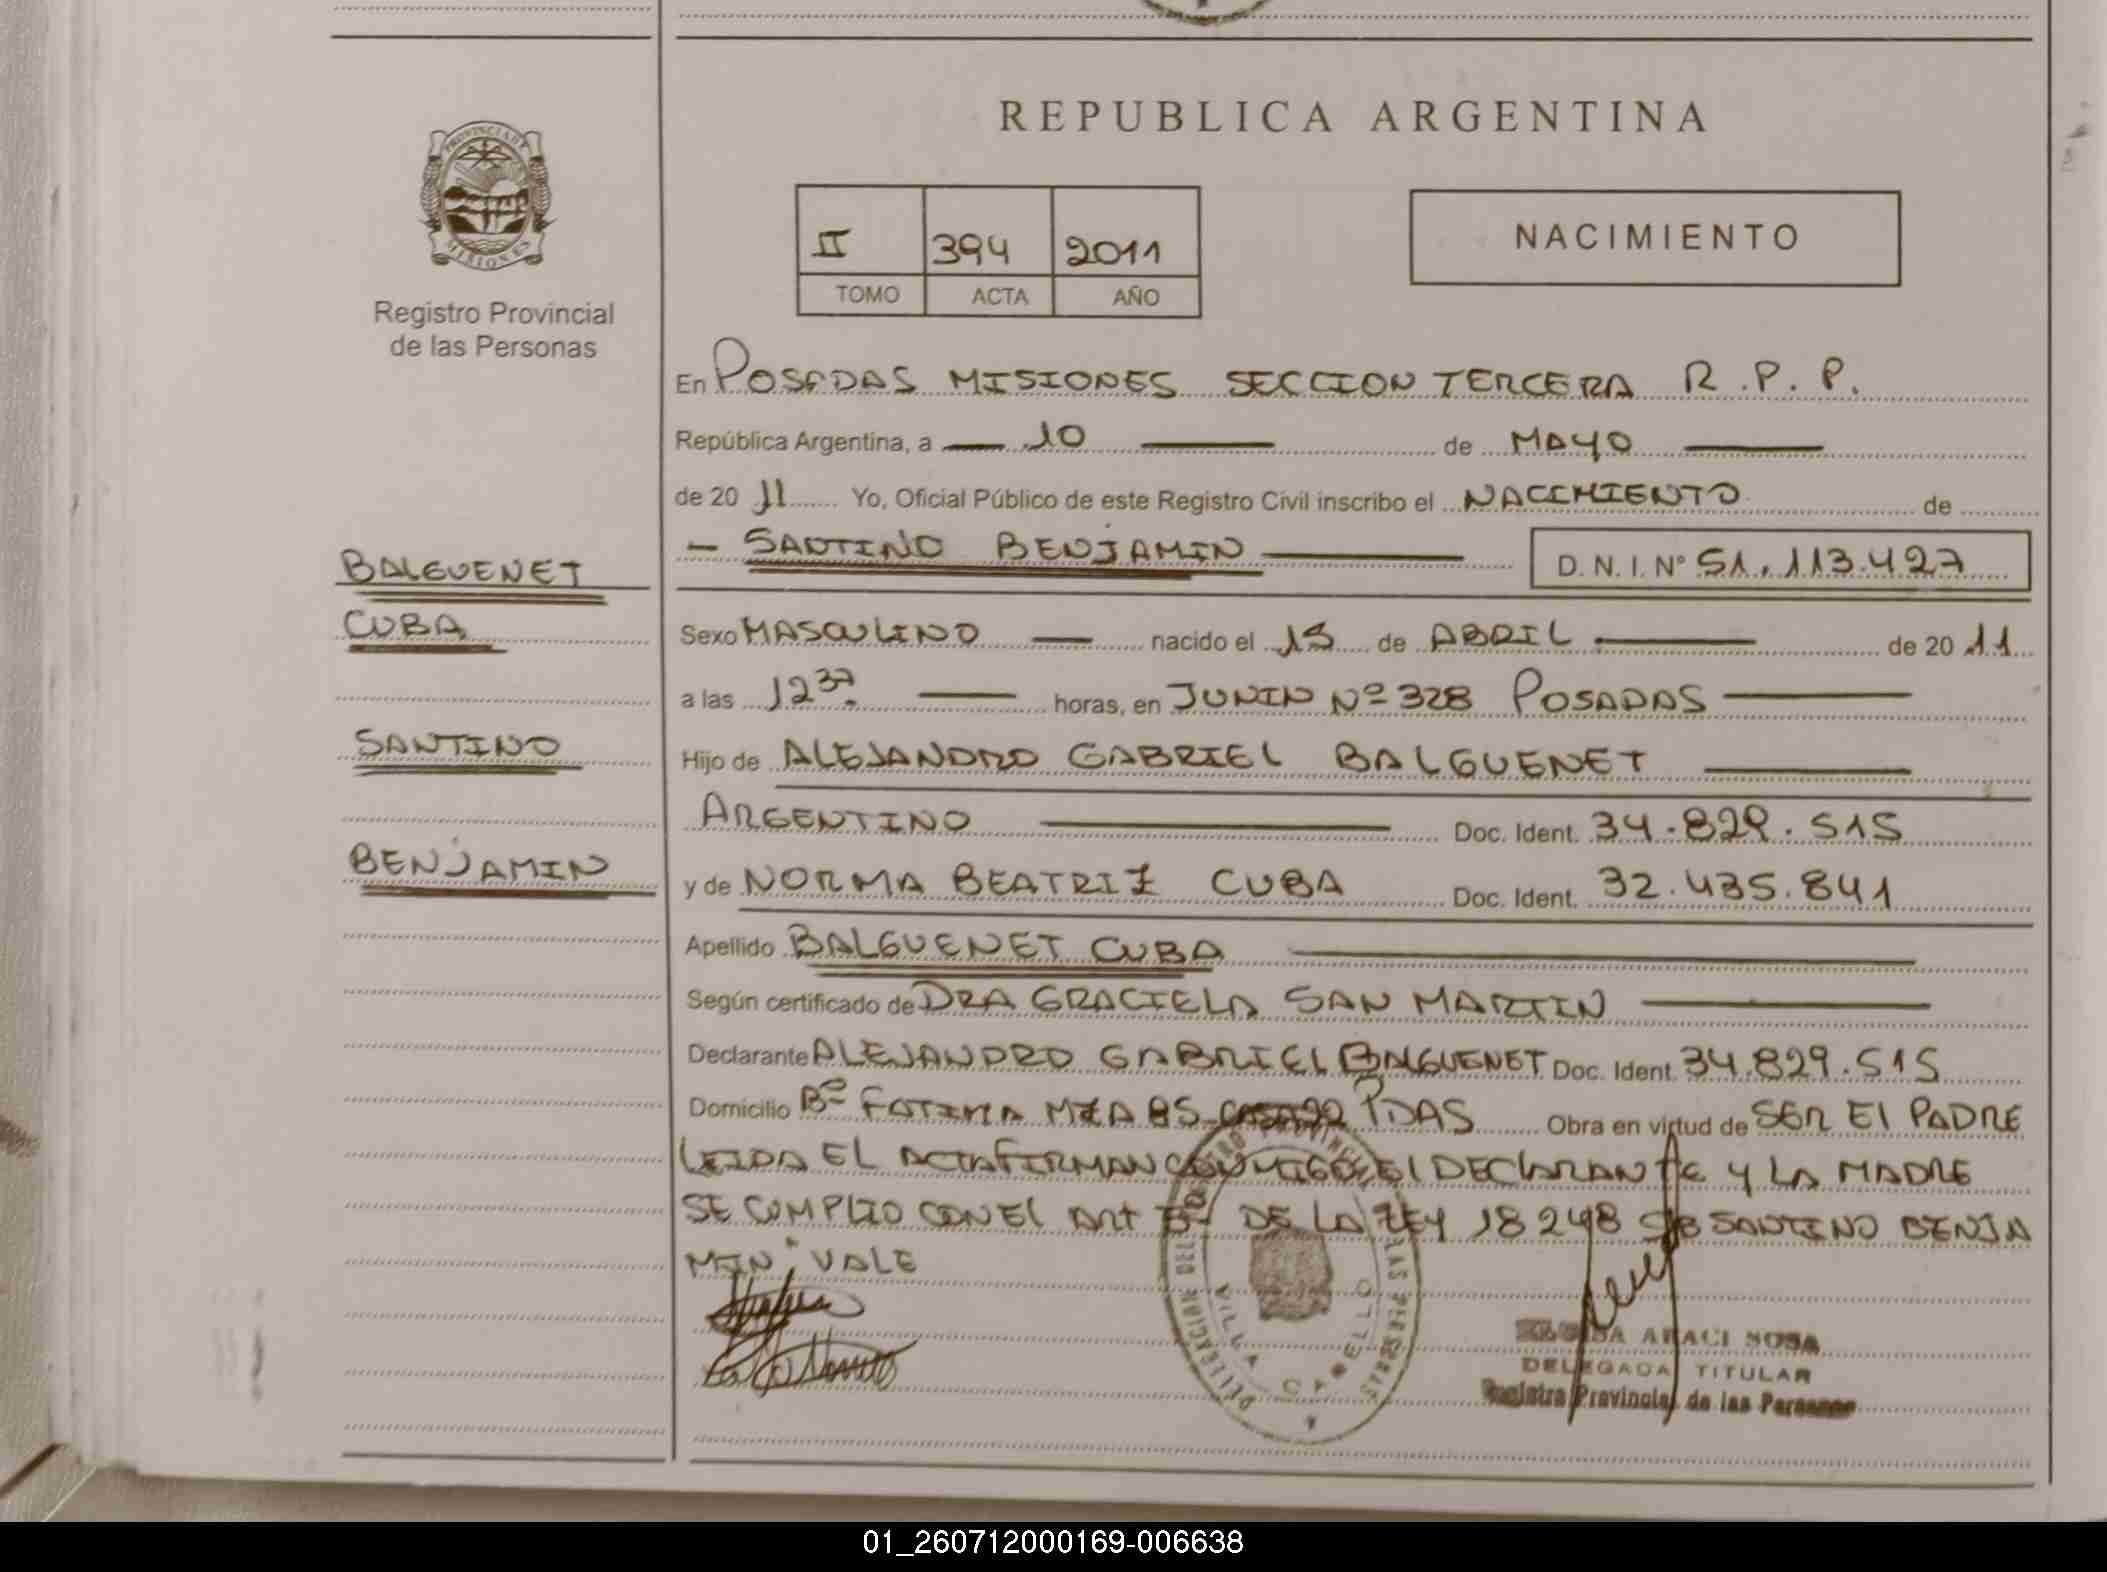 REPUBLICA ARGENTINA
PROVINCIA DE
MISIONES
Registro Provincial
de las Personas
II 394 2011
TOMO ACTA AÑO
NACIMIENTO
En POSADAS MISIONES SECCION TERCERA R.P.P.
República Argentina, a 10 de MAYO
de 20 11 Yo, Oficial Público de este Registro Civil inscribo el NACIMIENTO de
SANTINO BENJAMIN D.N.I. Nº 51.113.427
BALGUENET
CUBA
SANTINO
BENJAMIN
Sexo MASCULINO nacido el 15 de ABRIL de 20 11
a las 12 37 horas, en JUNIN Nº 328 POSADAS
Hijo de ALEJANDRO GABRIEL BALGUENET
ARGENTINO Doc. Ident. 34.829.515
y de NORMA BEATRIZ CUBA Doc. Ident. 32.435.841
Apellido BALGUENET CUBA
Según certificado de DRA GRACIELA SAN MARTIN
Declarante ALEJANDRO GABRIEL BALGUENET Doc. Ident. 34.829.515
Domicilio Bº FATIMA MZA 85 PDAS Obra en virtud de SER El PADRE
LEIDA EL ACTA FIRMAN CONMIGO El DECLARANTE Y LA MADRE
SE CUMPLIO CON El ART DE LA LEY 18248 SANTINO BENJA
MIN VALE
DELEGACION DEL REGISTRO PROVINCIAL DE LAS PERSONAS
VILLA CABELLO
ARACI SOSA
DELEGADA TITULAR
Registro Provincial de las Personas
01_260712000169-006638